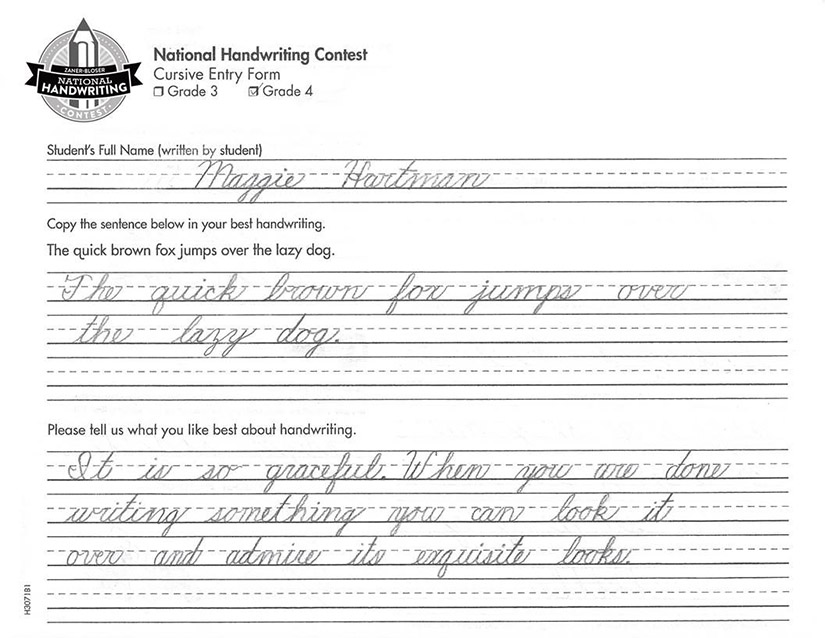 ZANER-BLOSER
NATIONAL
HANDWRITING
CONTEST
National Handwriting Contest
Cursive Entry Form
☐ Grade 3 ☑ Grade 4
Student's Full Name (written by student)
Maggie Hartman
Copy the sentence below in your best handwriting.
The quick brown fox jumps over the lazy dog.
The quick brown fox jumps over
the lazy dog.
Please tell us what you like best about handwriting.
It is so graceful. When you are done
writing something you can look it
over and admire its exquisite looks.
H307181